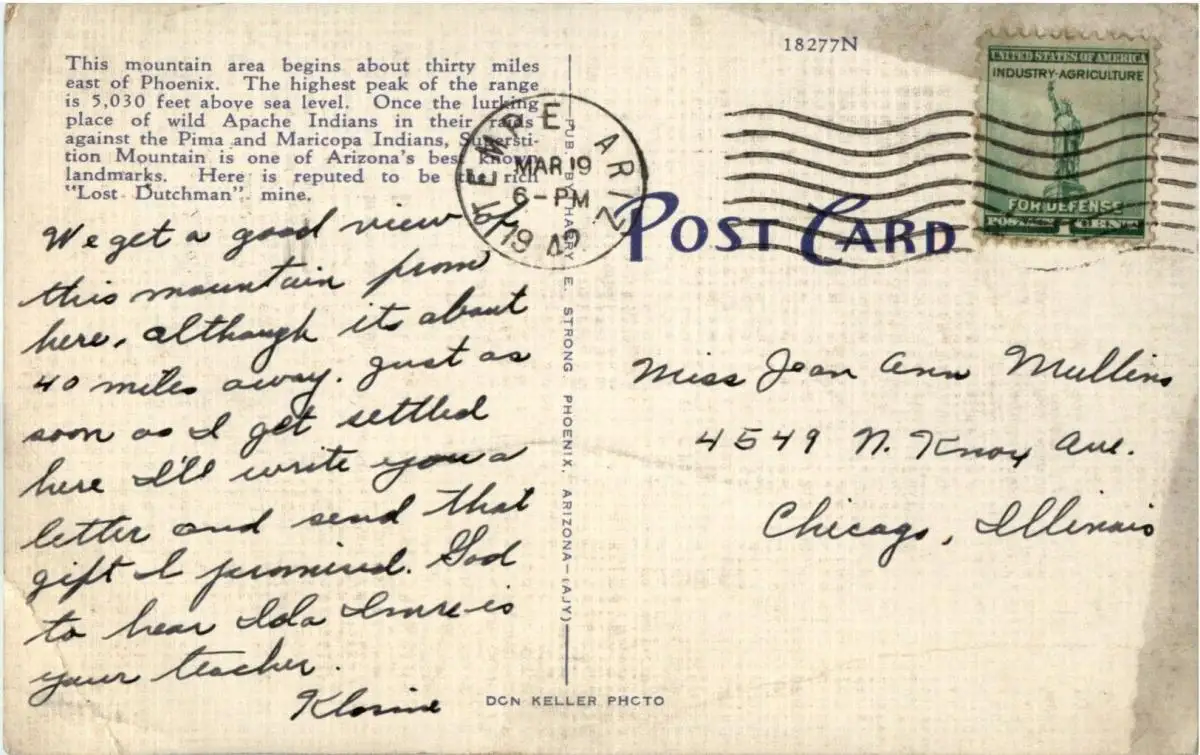 18277N
This mountain area begins about thirty miles
east of Phoenix. The highest peak of the range
is 5,030 feet above sea level. Once the lurking
place of wild Apache Indians in their raids
against the Pima and Maricopa Indians, Supersti-
tion Mountain is one of Arizona's best known
landmarks. Here is reputed to be the rich
"Lost Dutchman" mine.
We get a good view of
this mountain from
here, although its about
40 miles away. Just as
soon as I get settled
here I'll write you a
letter and send that
gift I promised. God
to hear Lola is
your teacher.
TEMPE ARIZ
MAR 19
6-PM
19
UNITED STATES OF AMERICA
INDUSTRY-AGRICULTURE
FOR DEFENSE
POSTAGE 1 CENT
POST CARD
PUB. BY HARRY E. STRONG, PHOENIX, ARIZONA-(AJY)
Miss Jean Ann Mullins
4549 N. Knox Ave.
Chicago, Illinois
DON KELLER PHOTO